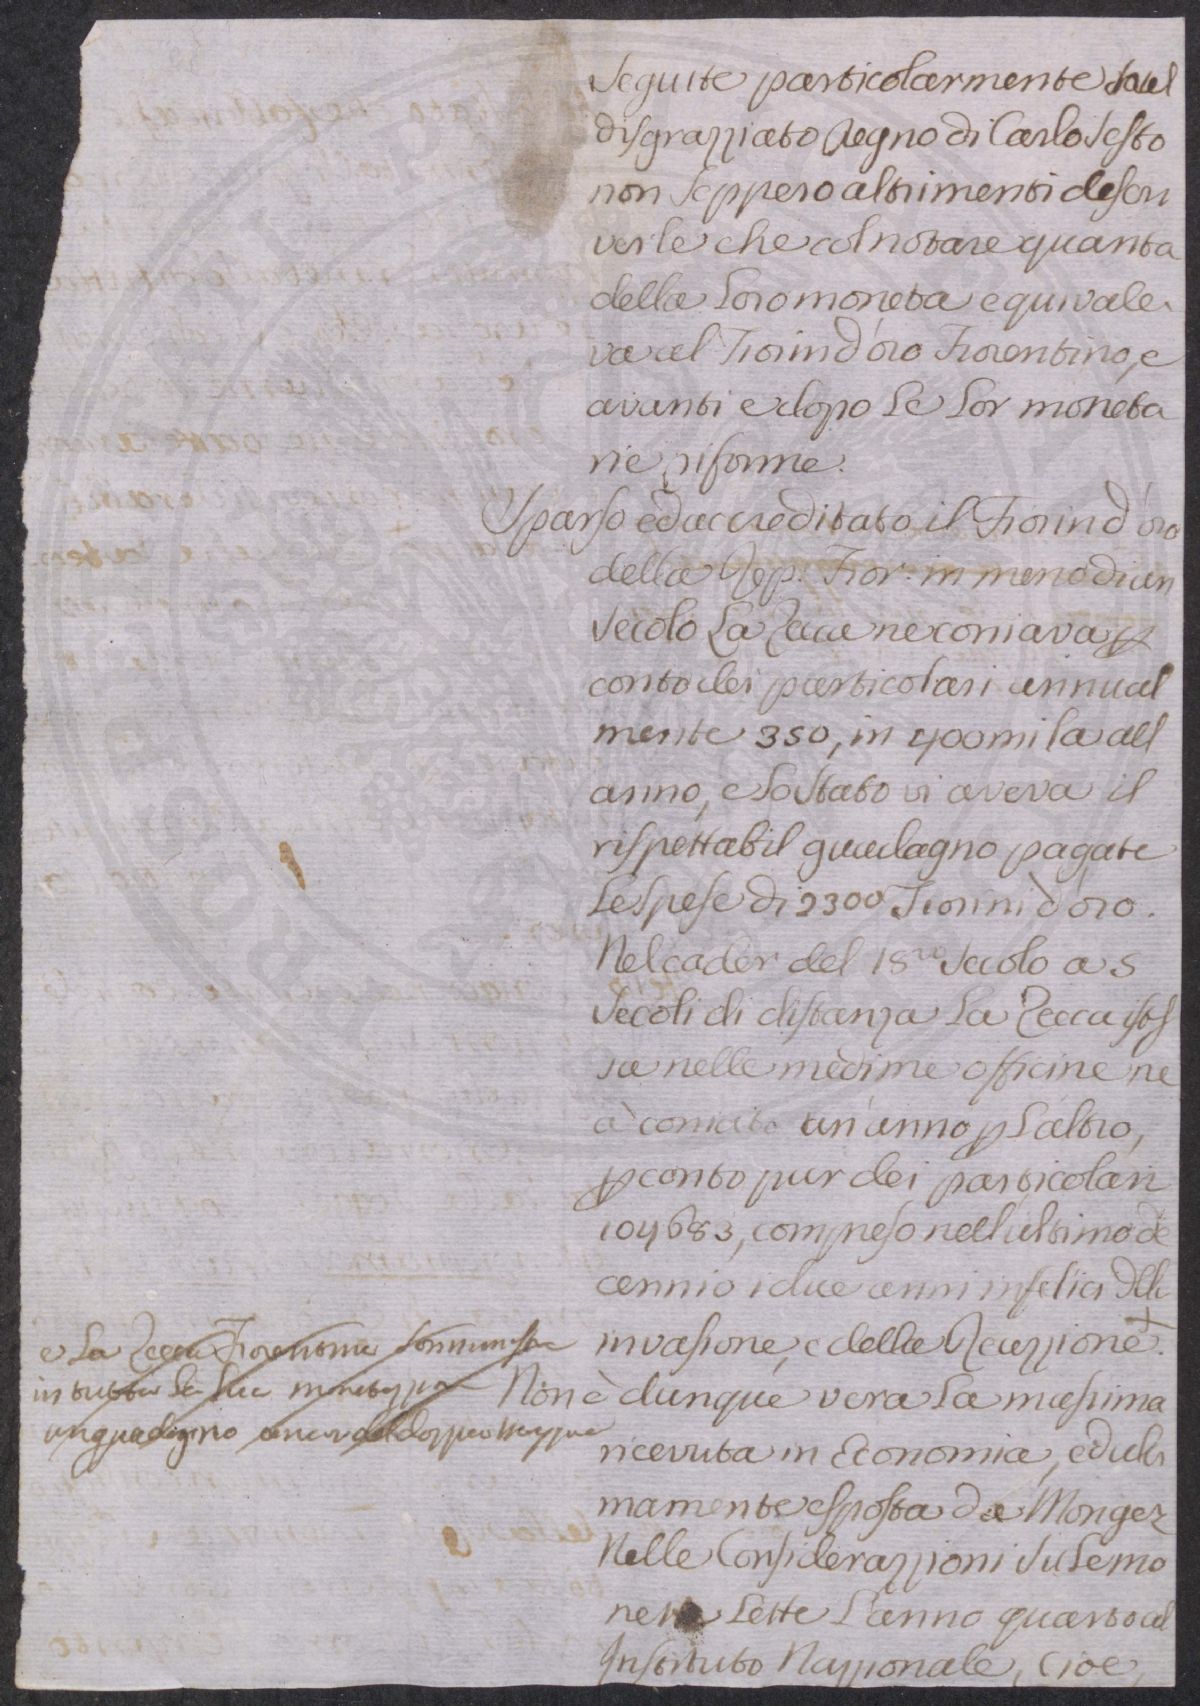 seguite particolarmente sul
disgrazziato Regno di Carlo Sesto
non seppero altrimenti descri
verle che col notare quanta
della loro moneta equivale-
va al Fiorin d'oro Fiorentino, e
avanti e dopo le lor moneta
rie riforme.
Sparso ed accreditato il Fiorin d'oro
della Rep. Fior. in meno di un
secolo la Zecca ne coniava p
conto dei particolari annual
mente 350, in 400 mila all
anno, e lo stato vi aveva il
rispettabil guadagno pagate
le spese di 2300 Fiorini d'oro.
Nel cader del 18mo secolo a 5
secoli di distanza la Zecca istes
sa nelle medime officine ne
à coniato un anno p l'altro,
p conto pur dei particolari
104683, compreso nell'ultimo de
cennio i due anni infelici dell
invasione, e della Reazzione. +
e la Zecca Fiorentina
in tutta le sue monete
un guadagno ancor del doppio
Non è dunque vera la massima
ricevuta in Economia, ed ulti
mamente esposta da Mongez
Nelle Considerazzioni su le mo
nete lette l'anno quarto al
Instituto Nazzionale, cioè,